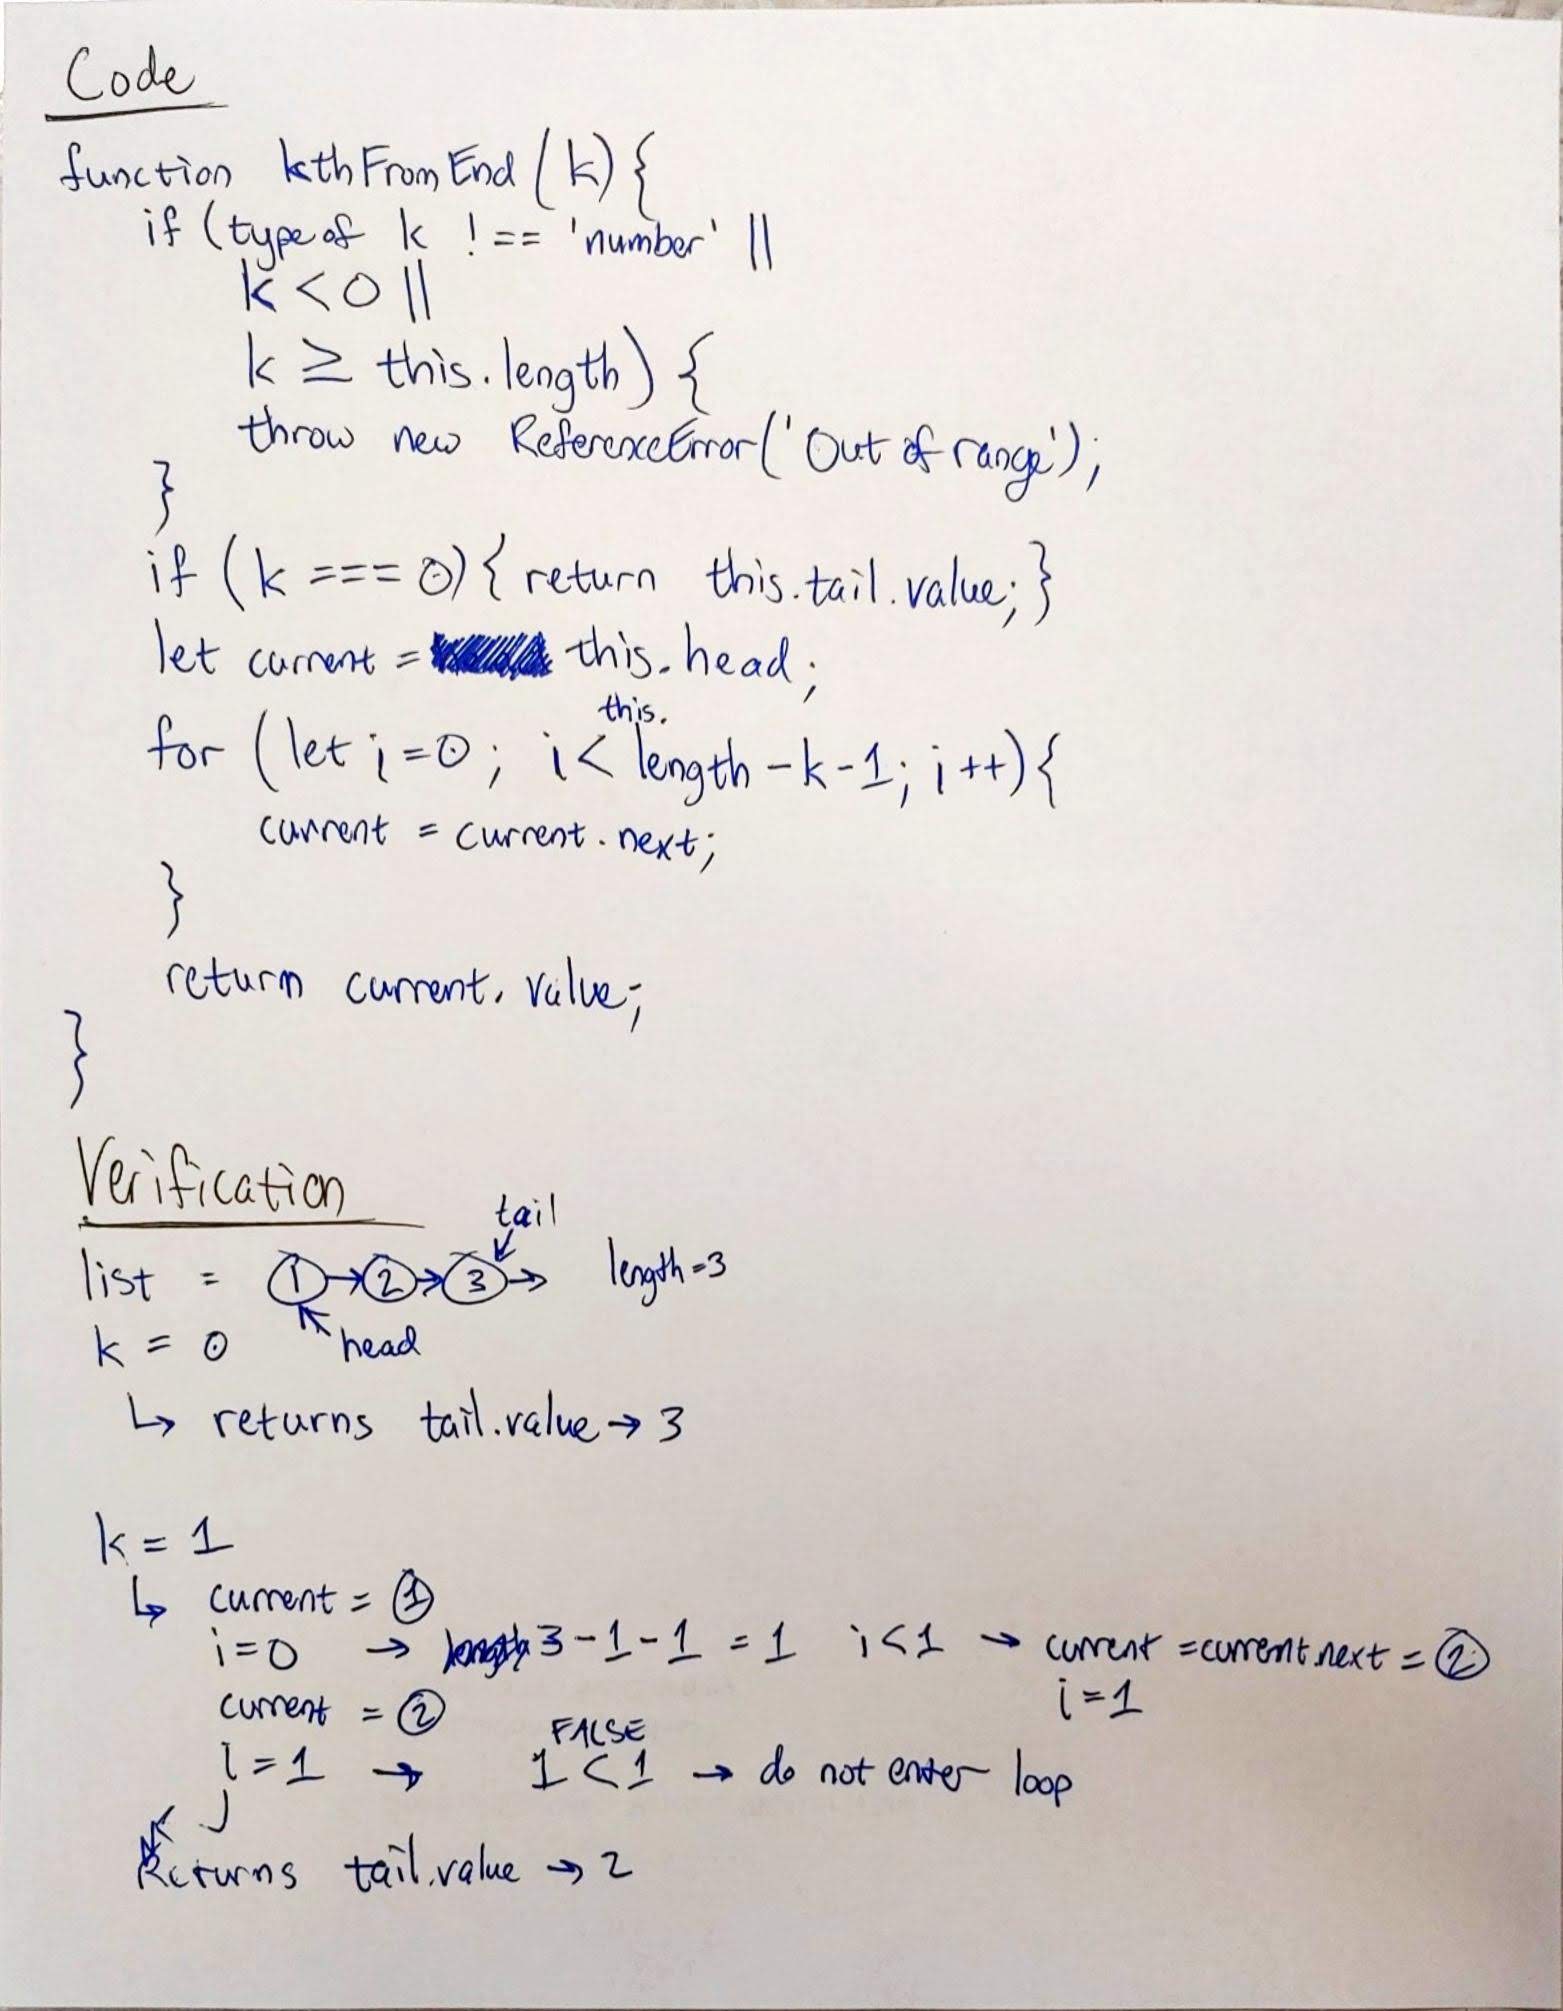 Code
function kthFromEnd(k){
if (typeof k !== 'number' ||
k < 0 ||
k ≥ this.length) {
throw new ReferenceError('Out of range');
}
if (k === 0) { return this.tail.value; }
let current = this.head;
this.
for (let i=0; i< length-k-1; i++){
current = current.next;
}
return current.value;
}
Verification
tail
list = ①→②→③→ length=3
k = 0 head
↳ returns tail.value → 3
k = 1
↳ current = ①
i=0 → 3-1-1 = 1 i<1 → current =current.next = ②
current = ② i=1
FALSE
i=1 → 1<1 → do not enter loop
Returns tail.value → 2